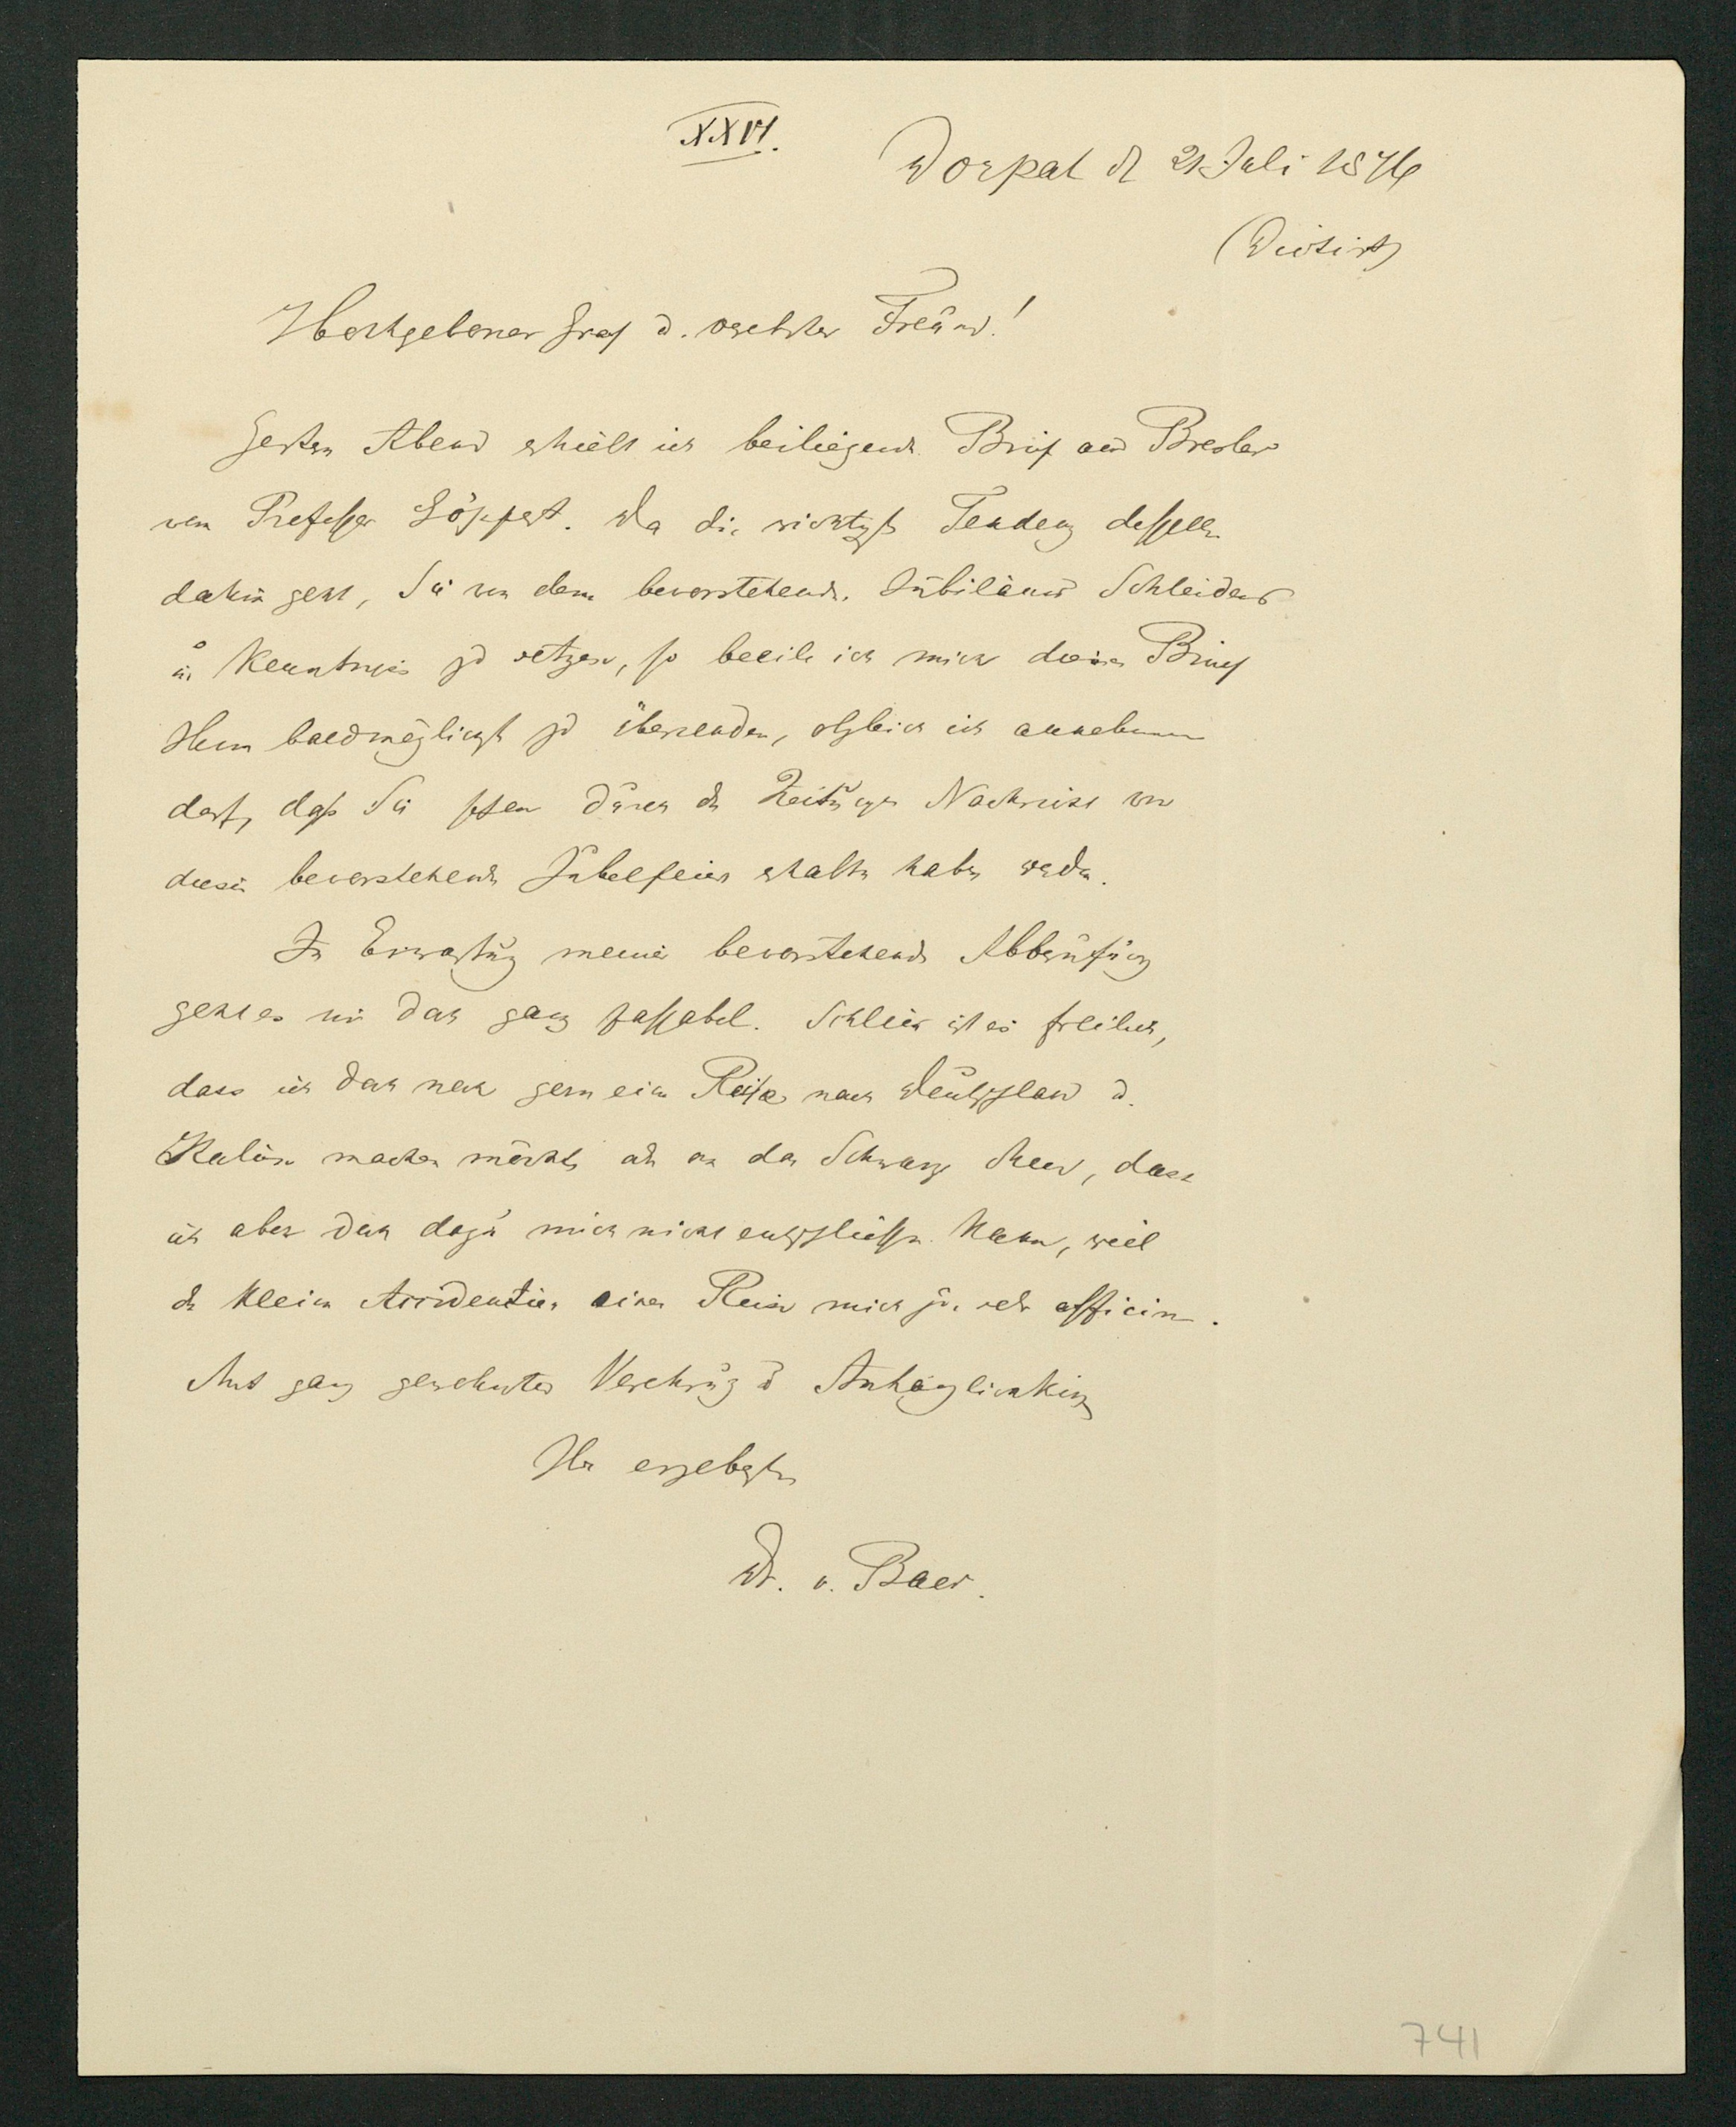 XXVI.
Dorpat d 21 Juli 1876
(Dictirt)
Hochgeborner Graf u. verehrter Freund!
Gestern Abend erhielt ich beiliegenden Brief aus Breslau
vom Professor Göppert. Da die wichtigste Tendenz desselben
dahin geht, Sie von dem bevorstehenden Jubiläum Schleidens
in Kenntniss zu setzen, so beeile ich mich diesen Brief
Ihnen baldmöglichst zu übersenden, obgleich ich annehmen
darf, daß Sie schon durch die Zeitungen Nachricht von
dieser bevorstehenden Jubelfeier erhalten haben werden.
In Erwartung meiner bevorstehenden Abberufung
geht es mir doch ganz passabel. Schlecht ist es freilich,
dass ich doch noch gern eine Reise nach Deutschland u.
Italien machen möchte oder an das Schwarze Meer, dass
ich aber doch dazu mich nicht entschließen kann, weil
die kleinen Accidentien einer Reise mich zu sehr afficiren.
Mit ganz gewohnter Verehrung u Anhänglichkeit
Ihr ergebenster
Dr. v. Baer.
741